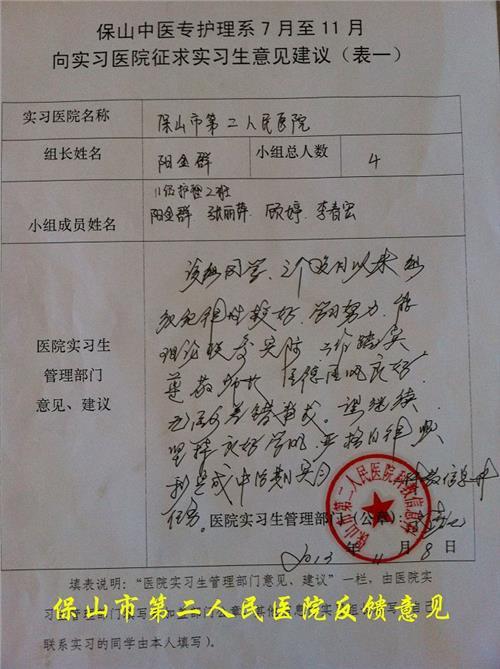 保山中医专护理系7月至11月
向实习医院征求实习生意见建议（表一）
实习医院名称 保山市第二人民医院
组长姓名 阳金群 小组总人数 4
11级护理2班
小组成员姓名 阳金群 张丽萍 顾婷 李春宏
该组同学，三个多月以来组
织纪律性较好，学习努力，能
理论联系实际，工作踏实
尊敬师长，医德医风良好，
无医疗差错事故。望继续
坚持良好学风，严格自律，顺
利完成中后期实习
任务。
医院实习生
管理部门
意见、建议
医院实习生管理部门（公章）：
保山市第二人民医院科教信息科
2013年11月8日
填表说明：“医院实习生管理部门意见、建议”一栏，由医院实
保山市第二人民医院反馈意见
联系实习的同学由本人填写）。